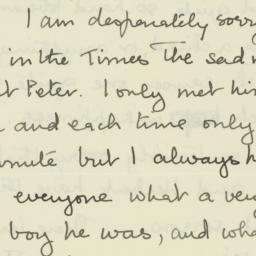 I am desperately sorry
in the Times the sad
t Peter. I only met him
and each time only
but I always h
everyone what a very
boy he was, and what